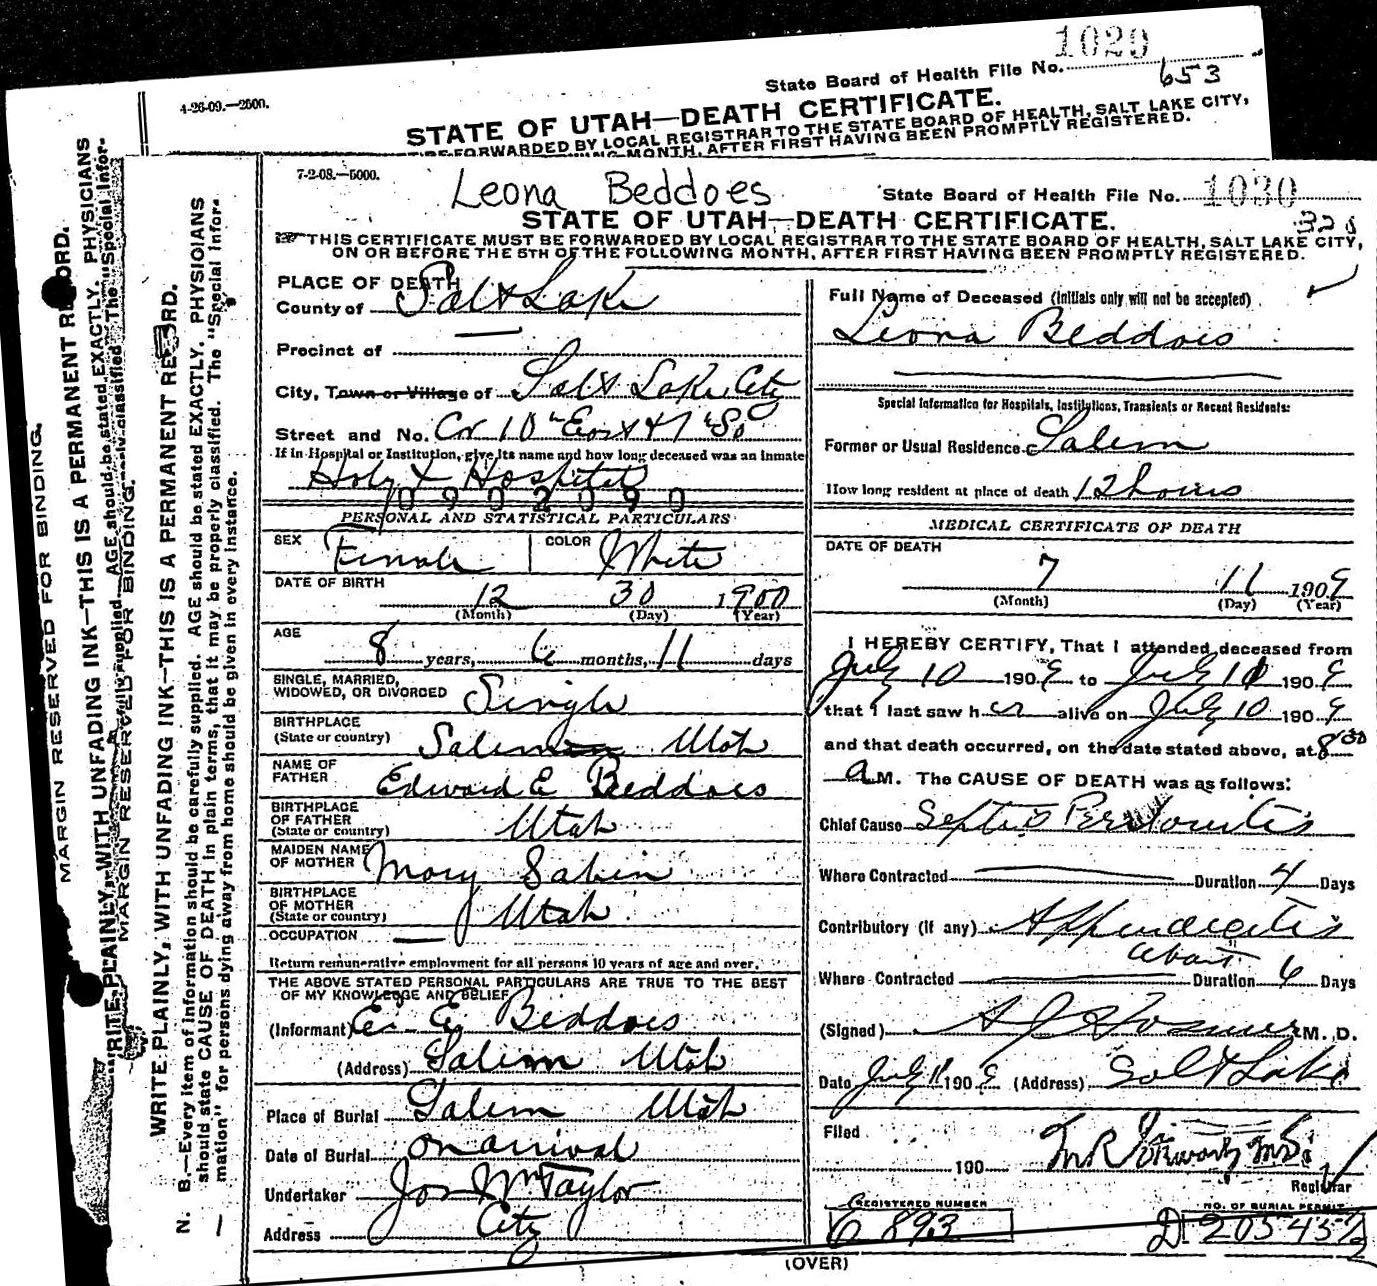 1029
State Board of Health File No.
653
4-26-09.—2500.
STATE OF UTAH—DEATH CERTIFICATE.
BE FORWARDED BY LOCAL REGISTRAR TO THE STATE BOARD OF HEALTH, SALT LAKE CITY,
ING MONTH, AFTER FIRST HAVING BEEN PROMPTLY REGISTERED.
MARGIN RESERVED FOR BINDING.
WRITE PLAINLY, WITH UNFADING INK—THIS IS A PERMANENT RECORD.
AGE should be stated EXACTLY. PHYSICIANS
classified. The "Special Infor-
MARGIN RESERVED FOR BINDING.
WRITE PLAINLY, WITH UNFADING INK—THIS IS A PERMANENT RECORD.
N. B.—Every item of information should be carefully supplied. AGE should be stated EXACTLY. PHYSICIANS
should state CAUSE OF DEATH in plain terms, that it may be properly classified. The "Special Infor-
mation" for persons dying away from home should be given in every instance.
7-2-08.—5000.
Leona Beddoes
State Board of Health File No. 1030
STATE OF UTAH—DEATH CERTIFICATE.
328
THIS CERTIFICATE MUST BE FORWARDED BY LOCAL REGISTRAR TO THE STATE BOARD OF HEALTH, SALT LAKE CITY,
ON OR BEFORE THE 5TH OF THE FOLLOWING MONTH, AFTER FIRST HAVING BEEN PROMPTLY REGISTERED.
PLACE OF DEATH
County of Salt Lake
Precinct of
City, Town or Village of Salt Lake City
Street and No. Cor 10th East & 1st So
If in Hospital or Institution, give its name and how long deceased was an inmate
Holy X Hospital
0902090
PERSONAL AND STATISTICAL PARTICULARS
SEX Female COLOR White
DATE OF BIRTH
12 30 1900
(Month) (Day) (Year)
AGE
8 years, 6 months, 11 days
SINGLE, MARRIED,
WIDOWED, OR DIVORCED Single
BIRTHPLACE
(State or country) Salem Utah
NAME OF
FATHER Edward E Beddoes
BIRTHPLACE
OF FATHER
(State or country) Utah
MAIDEN NAME
OF MOTHER Mary Sabin
BIRTHPLACE
OF MOTHER
(State or country) Utah
OCCUPATION
Return remunerative employment for all persons 10 years of age and over.
THE ABOVE STATED PERSONAL PARTICULARS ARE TRUE TO THE BEST
OF MY KNOWLEDGE AND BELIEF
(Informant) E. E. Beddoes
(Address) Salem Utah
Place of Burial Salem Utah
Date of Burial on arrival
Undertaker Jos Wm Taylor
Address City
Full Name of Deceased (Initials only will not be accepted)
Leona Beddoes
Special Information for Hospitals, Institutions, Transients or Recent Residents:
Former or Usual Residence Salem
How long resident at place of death 12 hours
MEDICAL CERTIFICATE OF DEATH
DATE OF DEATH
7 11 1909
(Month) (Day) (Year)
I HEREBY CERTIFY, That I attended deceased from
July 10 1909 to July 11 1909
that I last saw her alive on July 10 1909
and that death occurred, on the date stated above, at 8 30
a M. The CAUSE OF DEATH was as follows:
Chief Cause Septic Peritonitis
Where Contracted Duration 4 Days
Contributory (if any) Appendicitis
about
Where Contracted Duration 6 Days
(Signed) M. D.
Date July 11 1909 (Address) Salt Lake
Filed
190
Registrar
REGISTERED NUMBER
C 893
NO. OF BURIAL PERMIT
D 205452
(OVER)